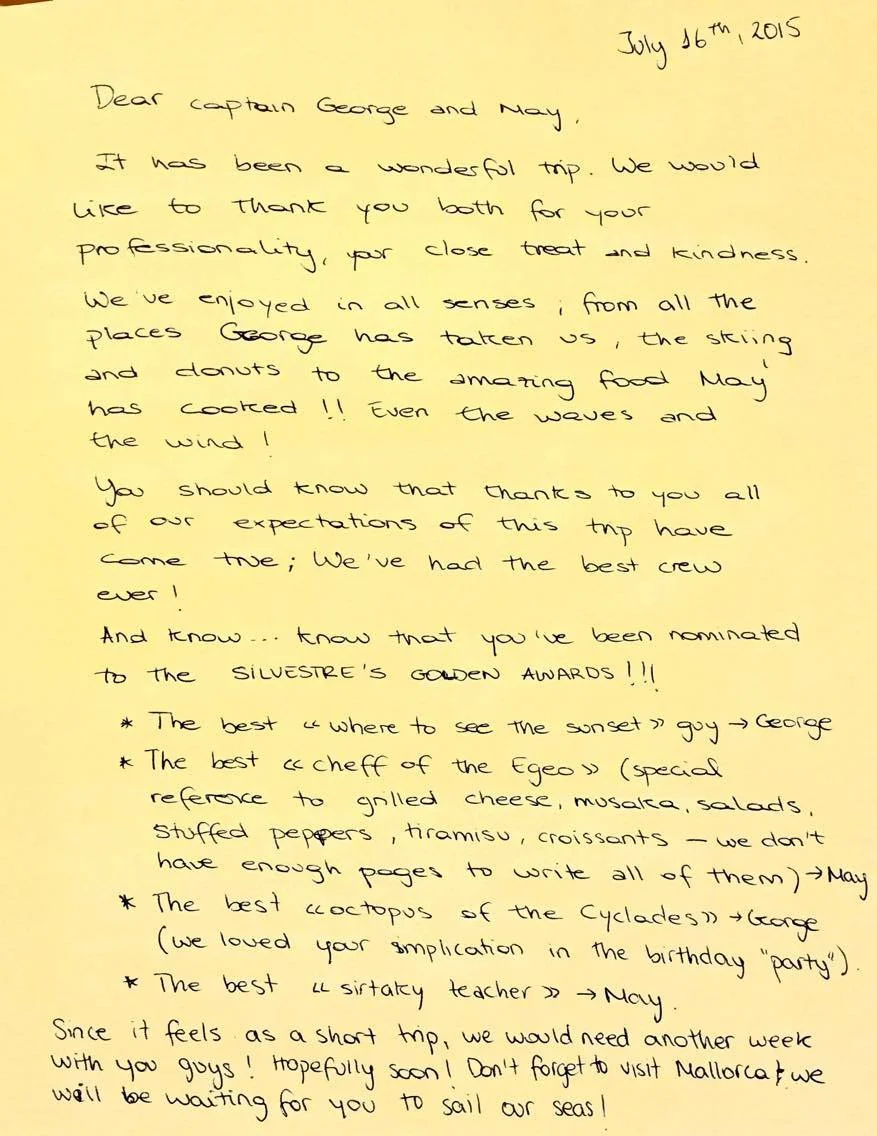 July 16th, 2015
Dear captain George and May,
It has been a wonderful trip. We would
like to thank you both for your
professionality, your close treat and kindness.
We've enjoyed in all senses; from all the
places George has taken us, the skiing
and donuts to the amazing food May
has cooked!! Even the waves and
the wind!
You should know that thanks to you all
of our expectations of this trip have
come true; We've had the best crew
ever!
And know... know that you've been nominated
to the SILVESTRE'S GOLDEN AWARDS!!!
* The best « where to see the sunset » guy → George
* The best « cheff of the Egeo » (special
reference to grilled cheese, musaka, salads,
stuffed peppers, tiramisu, croissants – we don't
have enough pages to write all of them) → May
* The best « octopus of the Cyclades » → George
(we loved your implication in the birthday "party").
* The best « sirtaky teacher » → May.
Since it feels as a short trip, we would need another week
with you guys! Hopefully soon! Don't forget to visit Mallorca; we
will be waiting for you to sail our seas!